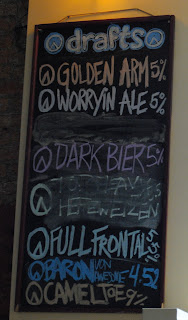 drafts
GOLDEN ARM 5%
WORRYIN ALE 5%
DARK BIER 5%
HEFEWEIZEN
FULL FRONTAL
BARON VON AWESOME 4.52
CAMEL TOE 9%